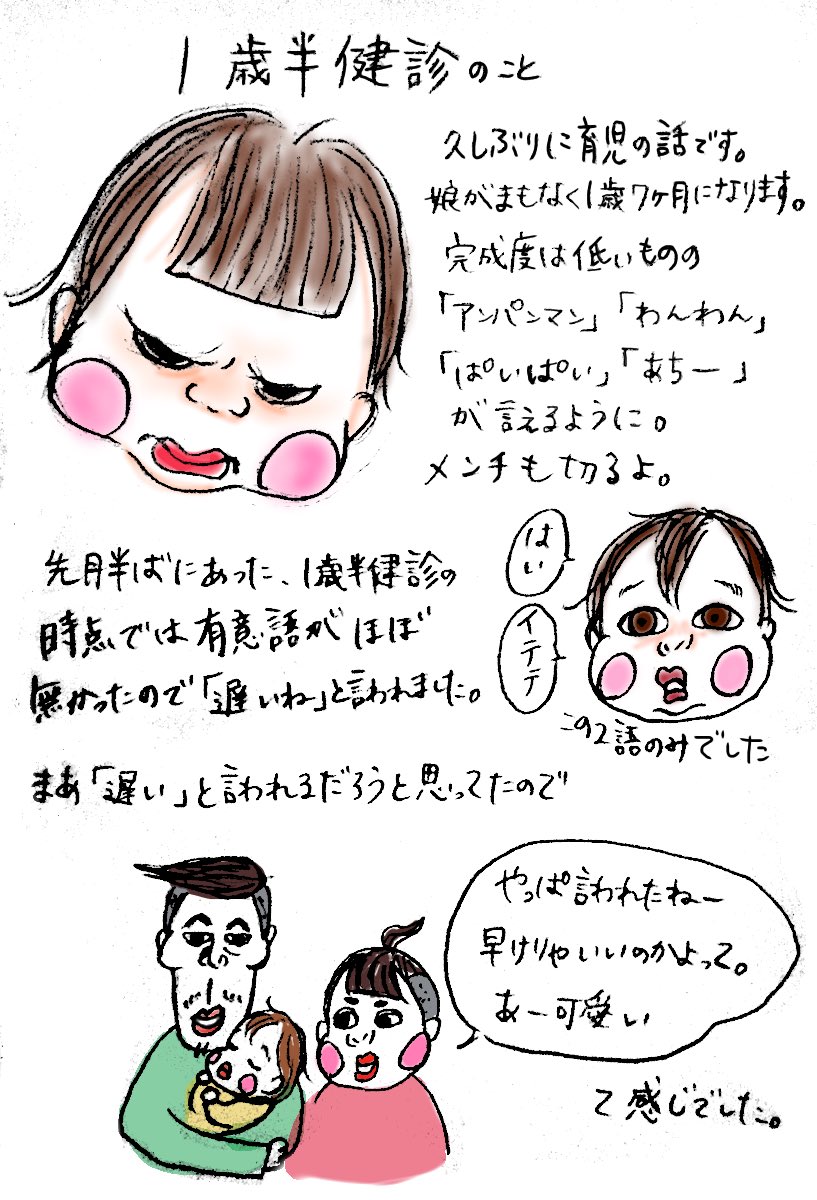 1歳半健診のこと
久しぶりに育児の話です。
娘がまもなく1歳7ヶ月になります。
完成度は低いものの
「アンパンマン」「わんわん」
「ぱいぱい」「あちー」
が言えるように。
メンチも切るよ。
先月半ばにあった、1歳半健診の
時点では有意語がほぼ
無かったので「遅いね」と言われました。
はい
イテテ
この2語のみでした
まあ「遅い」と言われるだろうと思ってたので
やっぱ言われたねー
早けりゃいいのかよって。
あー可愛い
て感じでした。